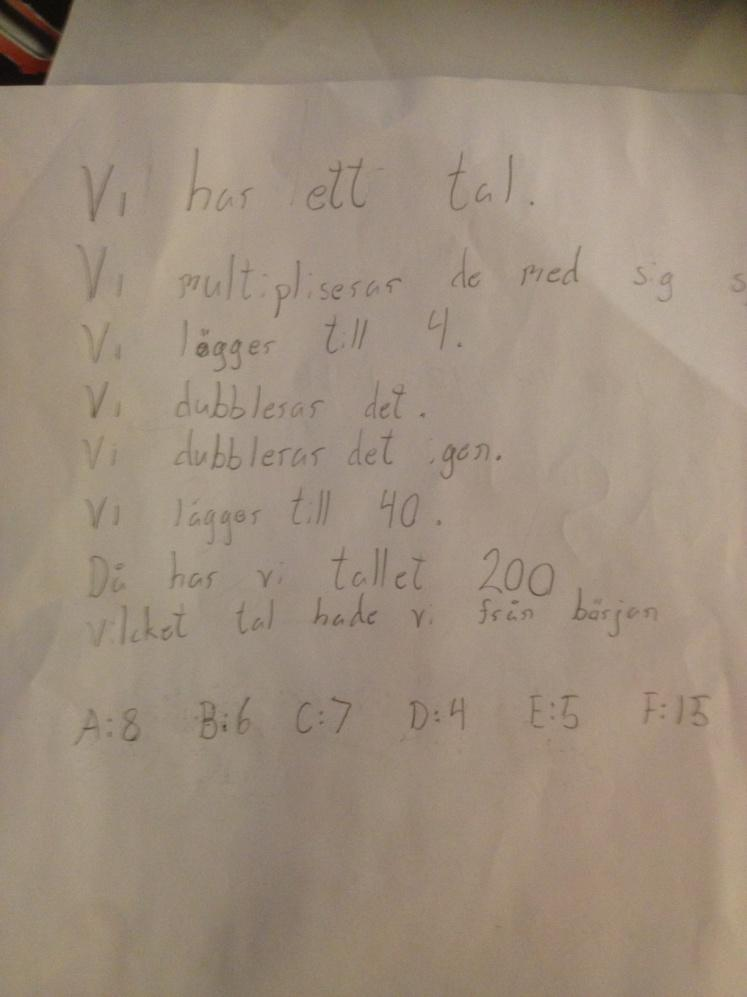 Vi har ett tal.
Vi multipliserar de med sig s
Vi lägger till 4.
Vi dubblerar det.
Vi dubblerar det igen.
Vi lägger till 40.
Då har vi tallet 200
vilcket tal hade vi från början
A:8 B:6 C:7 D:4 E:5 F:15